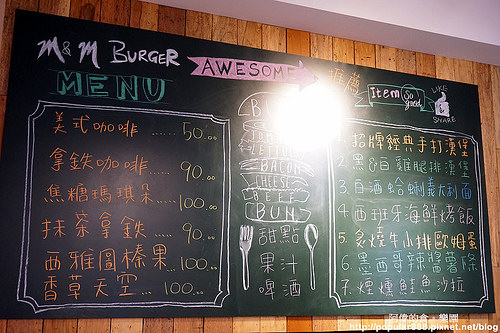 M & M BURGER
MENU
AWESOME
推薦
Item So good
LIKE
SHARE
美式咖啡 ...... 50...
拿鉄咖啡 ...... 90...
焦糖瑪琪朵 ...... 100...
抹茶拿鉄 ...... 90...
西雅圖榛果 ... 100...
香草天空 ... 100...
BACON
CHEESE
BEEF
BUN
甜點
果汁
啤酒
1. 招牌經典手打漢堡
2. 黑&白雞腿排漢堡
3. 白酒蛤蜊義大利面
4. 西班牙海鮮烤飯
5. 炙燒牛小排歐姆蛋
6. 墨西哥辣醬薯條
7. 煙燻鮭魚沙拉
阿偉的食。樂園
http://popular888.pixnet.net/blog